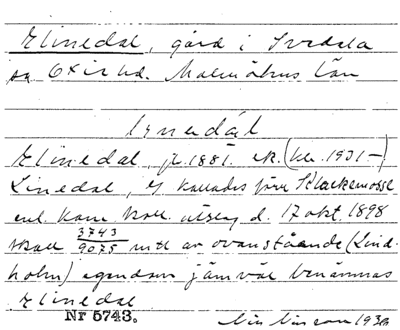 Elinedal, gård i Svedala
sn Oxie hd. Malmöhus län
Elinedal, jb. 1881. ek. (bl. 1931-)
Linedal, ej kallades förr Klockemosse
enl. Kam. Koll. utslag d. 17 okt. 1898
skall 3743/9075 mtl av ovanstående (Lind-
holm) egendom jämväl benämnas
Elinedal
Nr 5743.